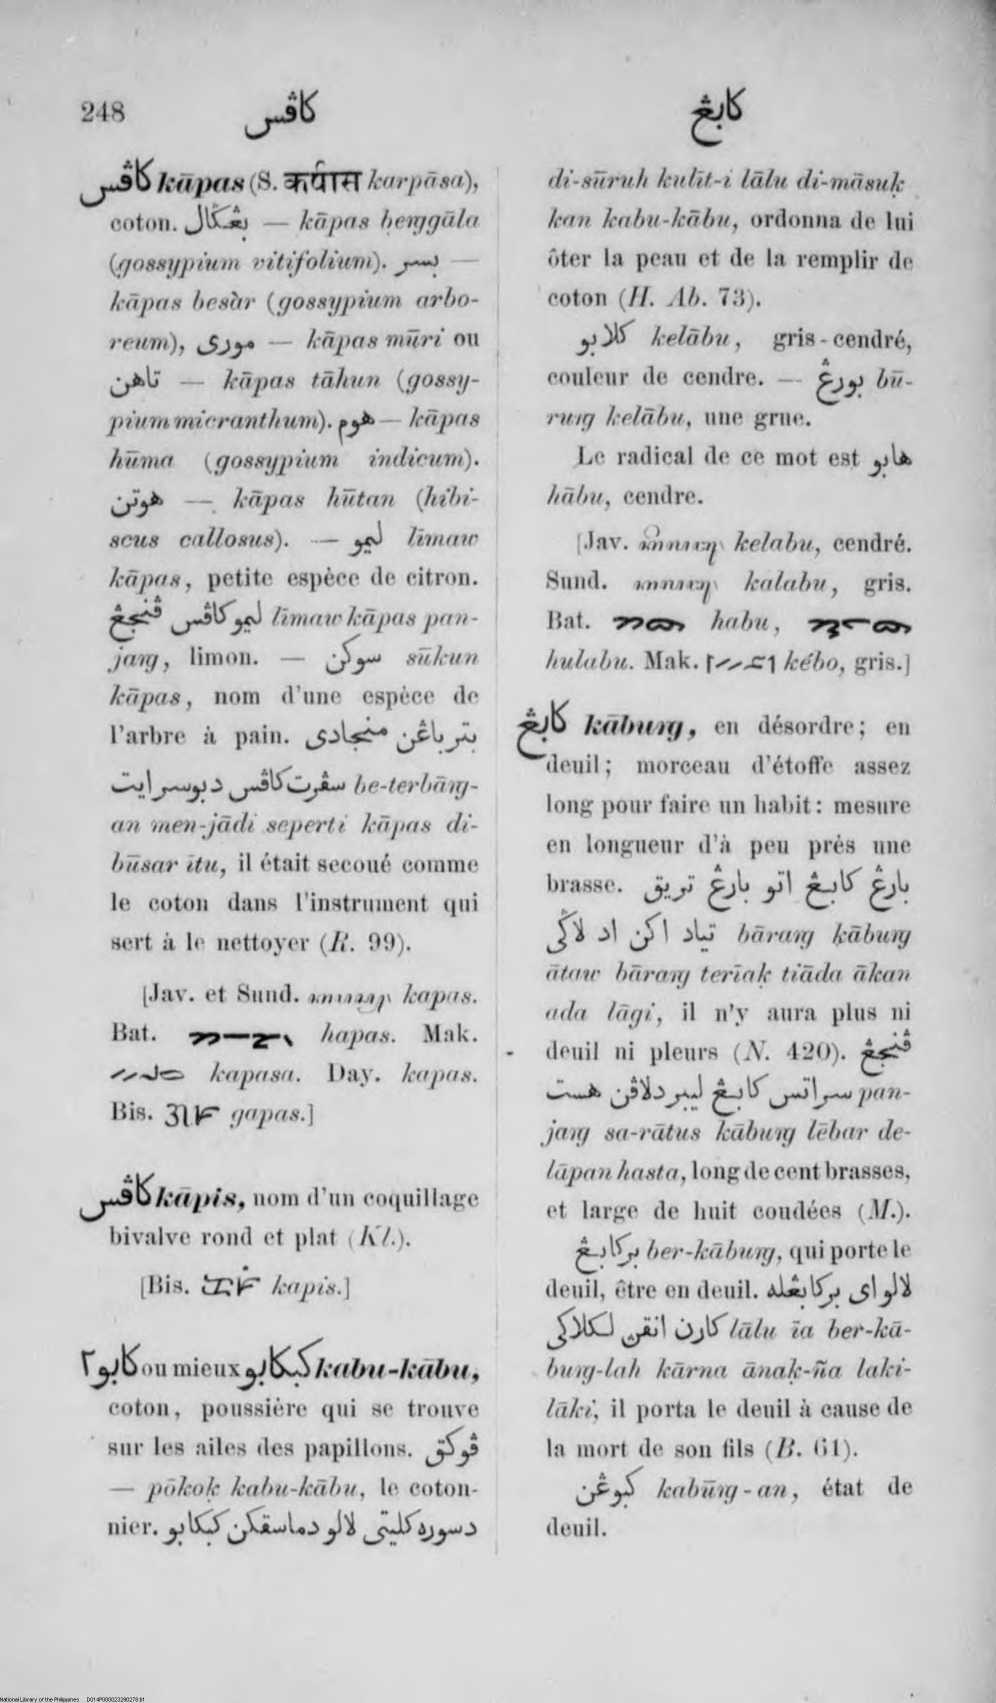 248 كاڤس كابڠ
كاڤس kāpas (S. कर्पास karpāsa),
coton. بڠݢال — kāpas beṅggāla
(gossypium vitifolium). بسر —
kāpas besàr (gossypium arbo-
reum), موری — kāpas mūri ou
تاهن — kāpas tāhun (gossy-
pium micranthum). هوم — kāpas
hūma (gossypium indicum).
هوتن — kāpas hūtan (hibi-
scus callosus). — ليمو līmaw
kāpas, petite espèce de citron.
ليمو كاڤس ڤنجڠ līmaw kāpas pan-
jaṅg, limon. — سوكن sūkun
kāpas, nom d'une espèce de
l'arbre à pain. بتر باڠن منجادی
سڤرت كاڤس دبوسر ايت be-terbāṅg-
an men-jādi seperti kāpas di-
būsar ītu, il était secoué comme
le coton dans l'instrument qui
sert à le nettoyer (R. 99).
[Jav. et Sund. kapas.
Bat. hapas. Mak.
kapasa. Day. kapas.
Bis. gapas.]
كاڤس kāpis, nom d'un coquillage
bivalve rond et plat (Kl.).
[Bis. kapis.]
كابو٢ ou mieux كبكابو kabu-kābu,
coton, poussière qui se trouve
sur les ailes des papillons. ڤوكق
— pōkoḳ kabu-kābu, le coton-
nier. دسوره كليتی لالو دماسقكن كبكابو
di-sūruh kulīt-i lālu di-māsuḳ
kan kabu-kābu, ordonna de lui
ôter la peau et de la remplir de
coton (H. Ab. 73).
كلابو kelābu, gris-cendré,
couleur de cendre. — بورڠ bū-
ruṅg kelābu, une grue.
Le radical de ce mot est هابو
hābu, cendre.
[Jav. kelabu, cendré.
Sund. kalabu, gris.
Bat. habu,
hulabu. Mak. kébo, gris.]
كابڠ kābuṅg, en désordre; en
deuil; morceau d'étoffe assez
long pour faire un habit: mesure
en longueur d'à peu près une
brasse. بارڠ كابڠ اتو بارڠ تريق
تياد اكن اد لاݢی bāraṅg ḳābuṅg
ātaw bāraṅg terīaḳ tiāda ākan
ada lāgi, il n'y aura plus ni
deuil ni pleurs (N. 420). ڤنجڠ
سراتس كابڠ ليبر دلاڤن هست pan-
jaṅg sa-rātus kābuṅg lēbar de-
lāpan hasta, long de cent brasses,
et large de huit coudées (M.).
بركابڠ ber-kābuṅg, qui porte le
deuil, être en deuil. لالو ای بركابڠله
كارن انقن لكلاكی lālu īa ber-kā-
buṅg-lah kārna ānaḳ-ña laki-
lāki, il porta le deuil à cause de
la mort de son fils (B. 61).
كبوڠن kabūṅg-an, état de
deuil.
National Library of the Philippines